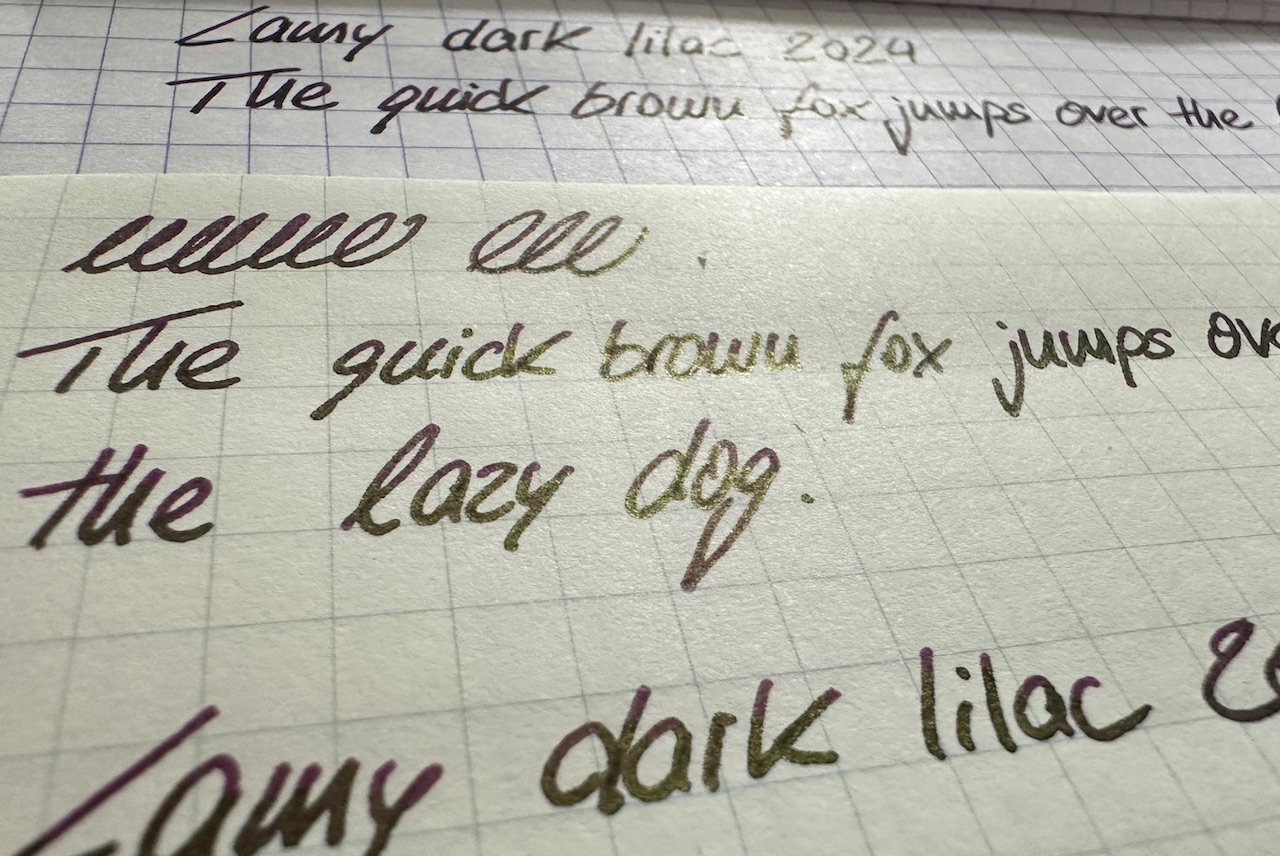 Lamy dark lilac 2024
The quick brown fox jumps over the
The quick brown fox jumps ove
the lazy dog.
Lamy dark lilac 20